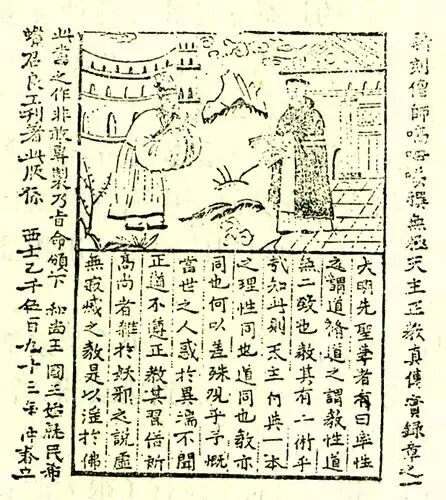 新刻僧師嗨呣㗝撰無極天主正教真傳實錄章之一
大明先聖學者有曰率性
之謂道脩道之謂教性道
無二致也教其有二術乎
哉知此則天主付與一本
之理性同也道同也教亦
同也何以差殊观乎予慨
當世之人惑於異端不聞
正道不遵正教其習俗所
高尚者雜於妖邪之說虛
無寂滅之教是以淫於佛
此書之作非敢專製乃旨命頒下 和尚王國王始就民希
蠟召良工刊著此版係 西士乙千伍百九十三年仲春立